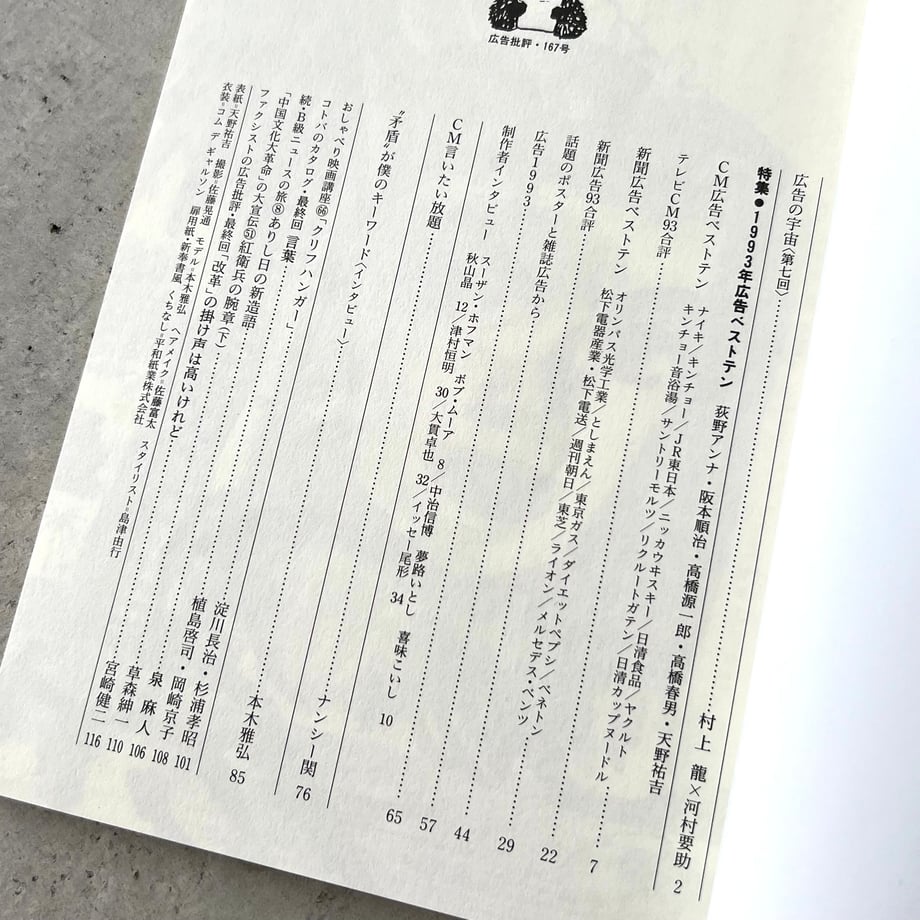 広告批評・167号
広告の宇宙〈第七回〉 村上 龍×河村要助 2
特集●1993年広告ベストテン 荻野アンナ・阪本順治・高橋源一郎・高橋春男・天野祐吉
CM広告ベストテン ナイキ/キンチョー/JR東日本/ニッカウヰスキー/日清食品/ヤクルト
キンチョー音浴湯/サントリーモルツ/リクルートガテン/日清カップヌードル
テレビCM93合評 7
新聞広告ベストテン オリンパス光学工業/としまえん/東京ガス/ダイエットペプシ/ベネトン
松下電器産業・松下電送/週刊朝日/東芝/ライオン/メルセデス・ベンツ
新聞広告93合評 22
話題のポスターと雑誌広告から 29
広告1993 44
制作者インタビュー スーザン・ホフマン ボブ・ムーア 8/中治信博 夢路いとし 喜味こいし 10
秋山晶 12/津村恒明 30/大貫卓也 32/イッセー尾形 34
CM言いたい放題 57
65
“矛盾”が僕のキーワード〈インタビュー〉 本木雅弘 85
ナンシー関 76
おしゃべり映画講座66「クリフハンガー」 淀川長治・杉浦孝昭 101
コトバのカタログ・最終回 言葉 植島啓司・岡崎京子 108
続・B級ニュースの旅⑧ ありし日の新造語 泉 麻人 106
「中国文化大革命」の大宣伝51 紅衛兵の腕章(下) 草森紳一 110
ファクシストの広告批評・最終回「改革」の掛け声は高いけれど 宮崎健二 116
表紙=天野祐吉 撮影=佐藤晃通 モデル=本木雅弘 ヘアメイク=佐藤富太 スタイリスト=島津由行
衣装=コム デ ギャルソン 扉用紙・新奉書風 くちなし=平和紙業株式会社